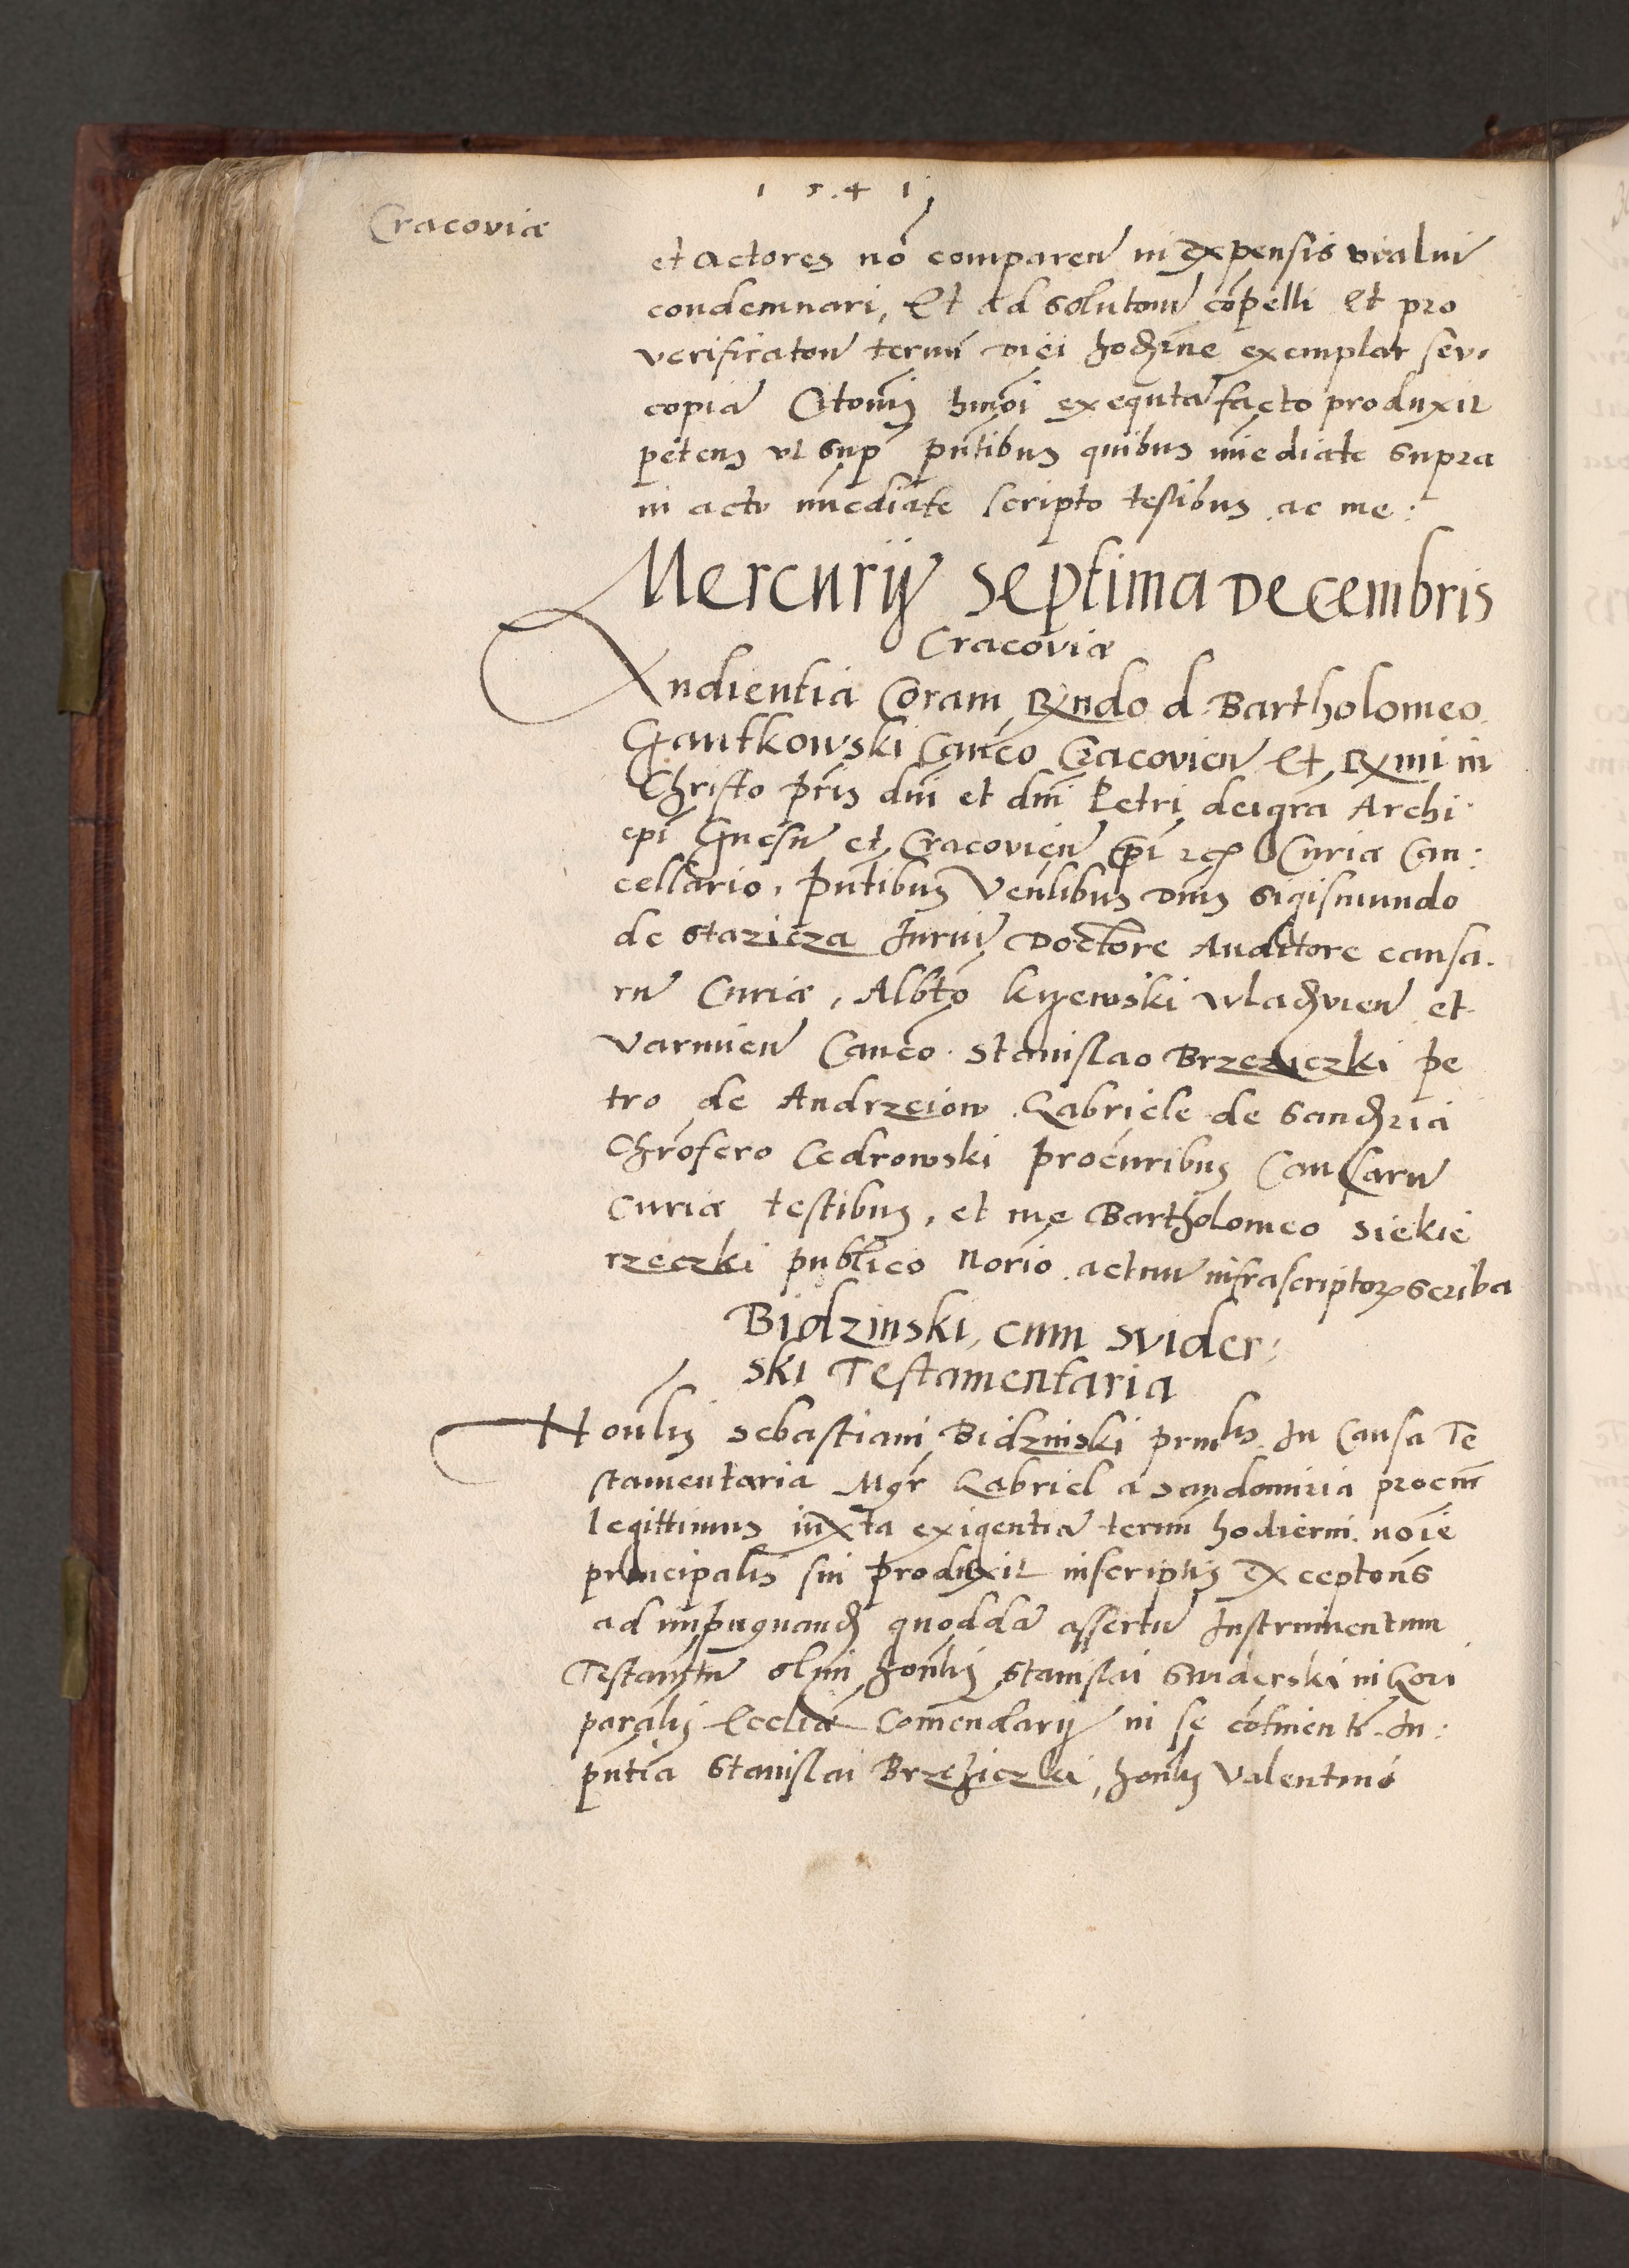 1541
Cracoviæ
et actores nō comparen̄ in expensis
condemnari, Et ad soluton̄ cōpelli et pro
verificaton̄ termī diei hodierne exemplar seu
copiā Citōnis hmōi exequtā facto produxit
petens ut sup pn̄tibus quibus im̄ediate supra
in actu im̄ediate scripto testibus ac me:
Mercurij Septima Decembris
Cracoviæ
Audientia Coram Rndo d. Bartholomeo
Gantkowski Canco Cracovien̄ Et Rmi in
Christo pris dni et dni Petri dei gra Archi
epi Gnesn̄ et Cracovien̄ epi Curiæ Can:
cellario, pn̄tibus Venlibus Dnis Sigismundo
de Stazicza Juriū Doctore Auditore causa.
rū Curiæ, Albto Kijewski Wladvien̄ et
Varmien̄ Canco. Stanislao Brzeziczki pe
tro de Andrzeiow Gabriele de Sandria
Chrofero Cedrowski procuribus Causarū
Curiæ testibus, et me Bartholomeo Siekie
rzeczki publico norio actuū infrascriptor scriba
Bidzinski, cum Svider:
ski Testamentaria
Honlis Sebastiani Bidzinski prinlis In Causa Te
stamentaria Mgr Gabriel a Sandomiria procur
legittimus iuxta exigentiā termī hodierni noie
principalis sui produxit in scriptis Exceptons
ad impugnand quoddā assertū Instrumentum
Testamtū olim honlis Stanislai Swiderski in
paralis Eccliæ Comendarij in se contineñ. In:
pn̄tia Stanislai Brzeziczki, honlis Valentini